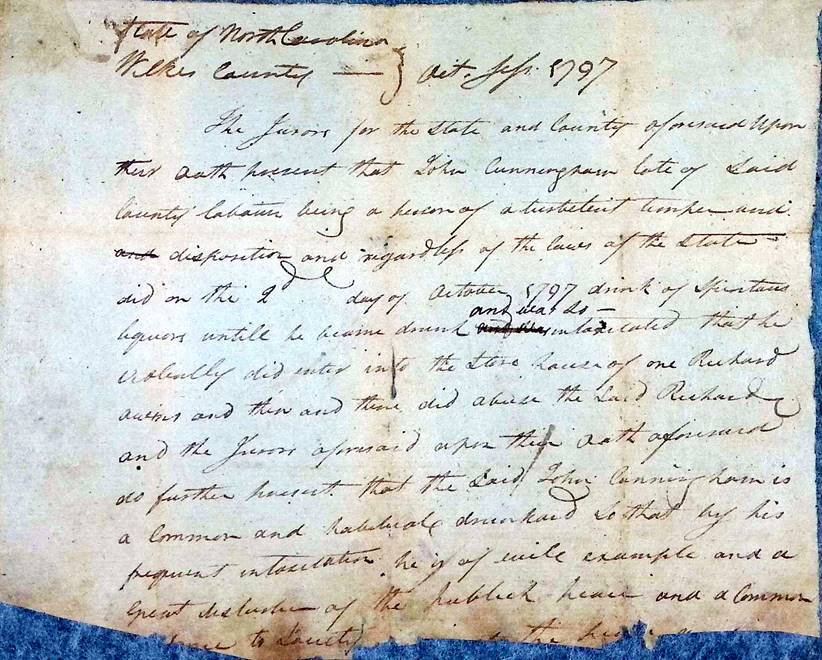 State of North Carolina
Wilkes County — } Oct. Sess. 1797
The Jurors for the State and County aforesaid Upon
their Oath present that John Cunningham late of Said
County labourer being a person of a turbelent temper and
and disposition and regardless of the laws of the State
did on the 2d day of October 1797 drink of Spiritous
and was so
liquors untill he became drunk and was intoxicated that he
violently did enter into the Store house of one Richard
Owens and then and there did abuse the Said Richard
and the Jurors aforesaid upon their Oath aforesaid
do further present that the Said John Cunningham is
a Common and habitual drunkard So that by his
frequent intoxitation he is of evile example and a
great disturber of the publick peace and a Common
to Society to the